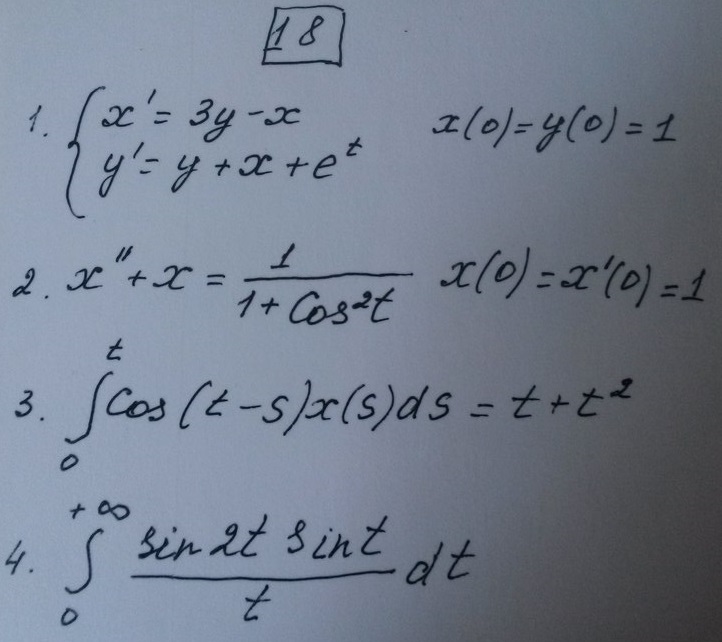 18
1. { x' = 3y - x    x(0) = y(0) = 1
y' = y + x + e^t
2. x'' + x = 1/(1 + Cos²t)    x(0) = x'(0) = 1
3. ∫₀ᵗ Cos(t - s)x(s)ds = t + t²
4. ∫₀^{+∞} (sin 2t sin t)/t dt